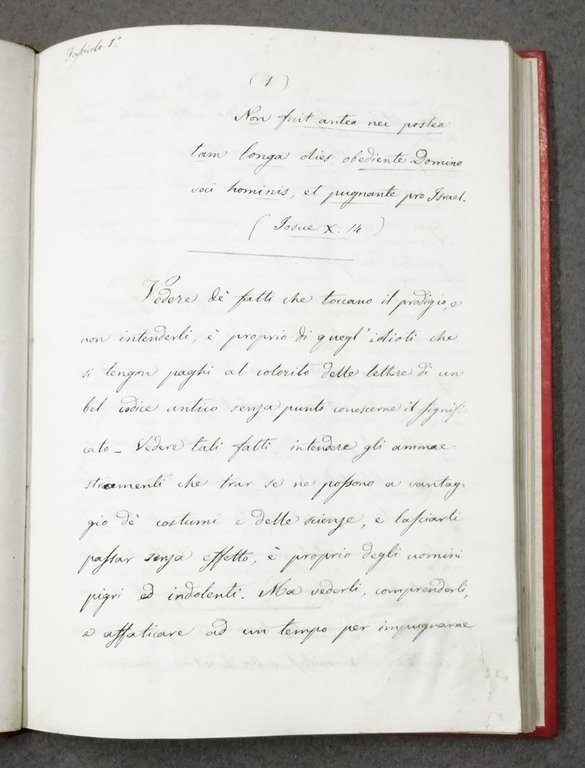 Fascicolo 1.º
( 1 )
Non fuit antea nec postea
tam longa dies, obediente Domino
voci hominis, et pugnante pro Israel.
( Josue X. 14 )
Vedere dè fatti che toccano il prodigio, e
non intenderli, è proprio di quegl' idioti che
si tengon paghi al colorito delle lettere di un
bel codice antico senza punto conoscerne il signifi-
cato – Vedere tali fatti intendere gli ammae-
stramenti che trar se ne possono a vantag-
gio dè costumi e delle scienze, e lasciarli
passar senza effetto, è proprio degli uomini
pigri ed indolenti. Ma vederli, comprenderli,
e affaticare ad un tempo per impugnarne